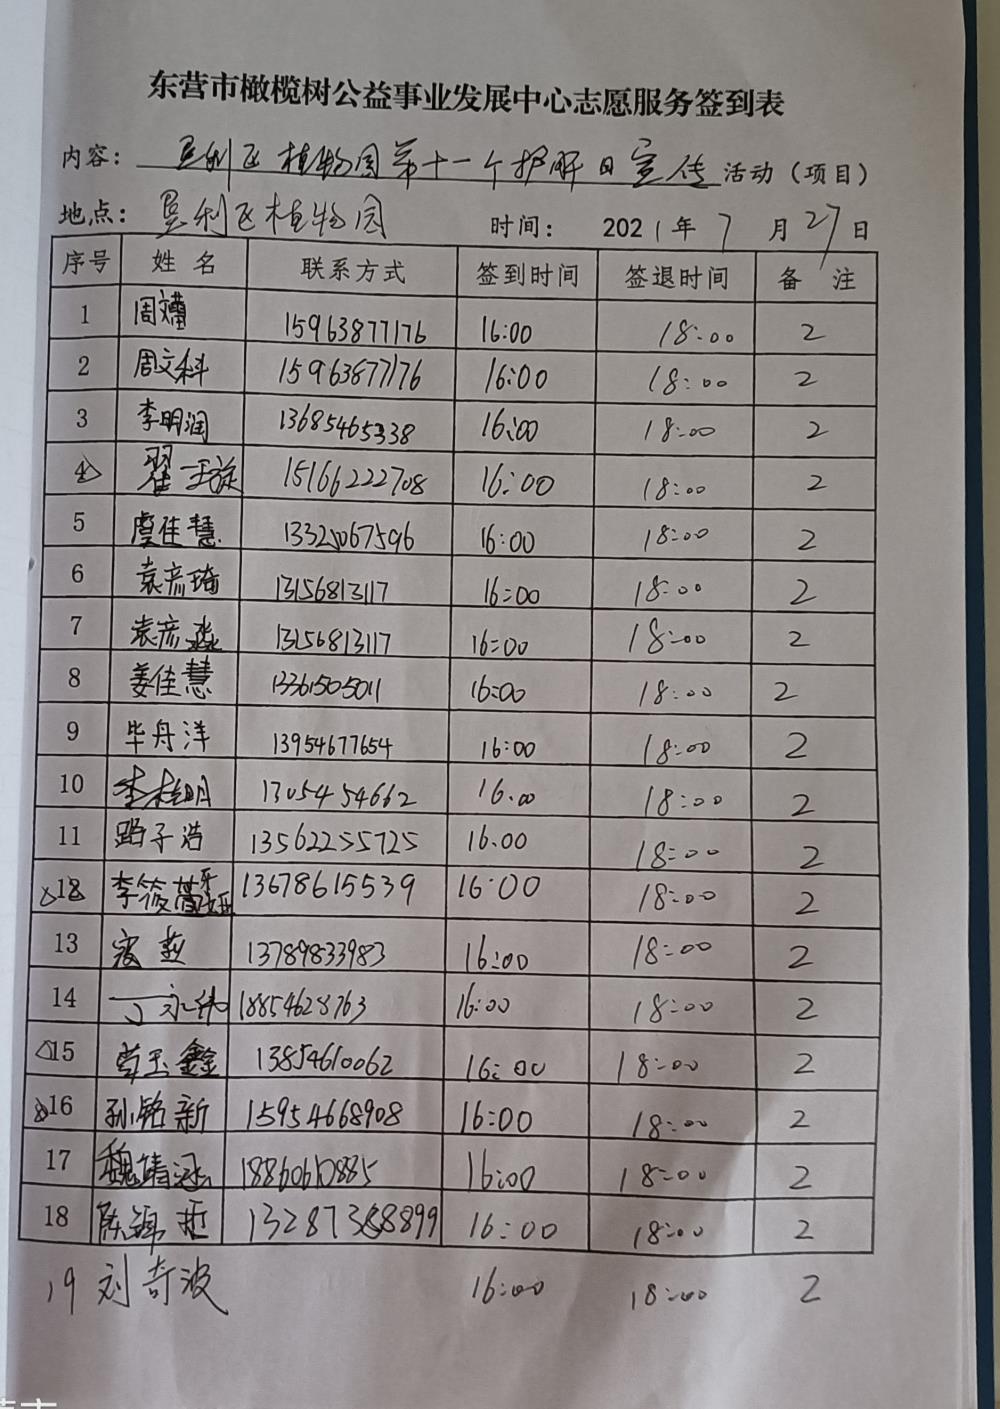 东营市橄榄树公益事业发展中心志愿服务签到表
内容：垦利区植物园第十一个护解日宣传活动（项目）
地点：垦利区植物园 时间：2021年7月27日
序号 姓名 联系方式 签到时间 签退时间 备注
1 周 15963877176 16:00 18:00 2
2 周文科 15963877176 16:00 18:00 2
3 李明润 13685465338 16:00 18:00 2
4 翟 15166222708 16:00 18:00 2
5 虞佳慧 16:00 18:00 2
6 袁彦琦 13156813117 16:00 18:00 2
7 袁彦淼 13156813117 16:00 18:00 2
8 姜佳慧 13361505011 16:00 18:00 2
9 毕舟洋 13954677654 16:00 18:00 2
10 1305454662 16.00 18:00 2
11 路子浩 13562255725 16.00 18:00 2
12 李筱 13678615539 16:00 18:00 2
13 13789833983 16:00 18:00 2
14 丁永 18854628763 16:00 18:00 2
15 玉鑫 13854610062 16:00 18:00 2
16 孙铭新 15954668908 16:00 18:00 2
17 魏靖 16:00 18:00 2
18 陈 16:00 18:00 2
19 刘奇波 16:00 18:00 2